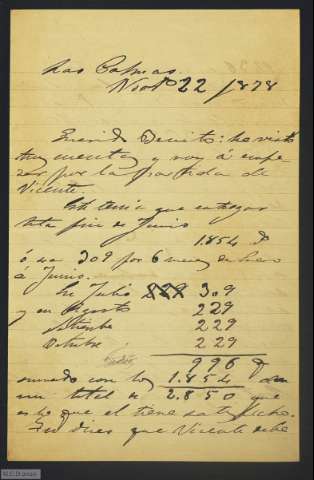 Las Palmas.
Novbre 22 / 1878
Querido Benito: he visto
tus cuentas y voy á empe
zar por la partida de
Vicente
Este tenia que entregar
hasta fin de Junio
1.854
ó sea 309 por 6 meses de Enero
á Junio.
En Julio 229 309
y en Agosto 229
Stbre 229
Octubre 229
996
sumado con los 1.854 dan
un total de 2.850 que
es lo que el tiene satisfecho.
Tu dices que Vicente debe